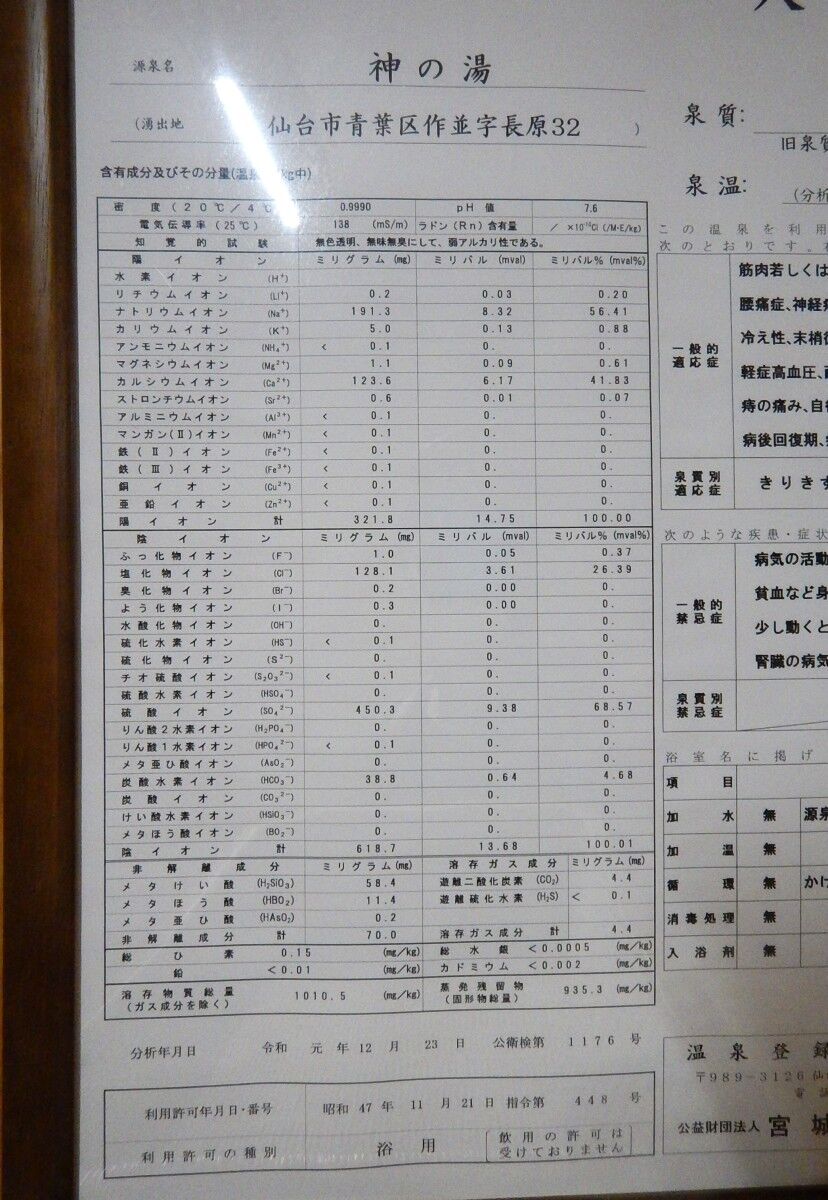 源泉名 神の湯
(湧出地 仙台市青葉区作並字長原32 )
含有成分及びその分量(温泉 kg中)
密度(20℃/4℃ 0.9990 pH値 7.6
電気伝導率(25℃) 138 (mS/m) ラドン(Rn)含有量 / ×10⁻¹⁰Ci(/M·E/kg)
知覚的試験 無色透明、無味無臭にして、弱アルカリ性である。
陽イオン ミリグラム(mg) ミリバル(mval) ミリバル%(mval%)
水素イオン (H⁺)
リチウムイオン (Li⁺) 0.2 0.03 0.20
ナトリウムイオン (Na⁺) 191.3 8.32 56.41
カリウムイオン (K⁺) 5.0 0.13 0.88
アンモニウムイオン (NH₄⁺) < 0.1 0. 0.
マグネシウムイオン (Mg²⁺) 1.1 0.09 0.61
カルシウムイオン (Ca²⁺) 123.6 6.17 41.83
ストロンチウムイオン (Sr²⁺) 0.6 0.01 0.07
アルミニウムイオン (Al³⁺) < 0.1 0. 0.
マンガン(Ⅱ)イオン (Mn²⁺) < 0.1 0. 0.
鉄(Ⅱ)イオン (Fe²⁺) < 0.1 0. 0.
鉄(Ⅲ)イオン (Fe³⁺) < 0.1 0. 0.
銅イオン (Cu²⁺) < 0.1 0. 0.
亜鉛イオン (Zn²⁺) < 0.1 0. 0.
陽イオン計 321.8 14.75 100.00
陰イオン ミリグラム(mg) ミリバル(mval) ミリバル%(mval%)
ふっ化物イオン (F⁻) 1.0 0.05 0.37
塩化物イオン (Cl⁻) 128.1 3.61 26.39
臭化物イオン (Br⁻) 0.2 0.00 0.
よう化物イオン (I⁻) 0.3 0.00 0.
水酸化物イオン (OH⁻) 0. 0. 0.
硫化水素イオン (HS⁻) < 0.1 0. 0.
硫化物イオン (S²⁻) 0. 0. 0.
チオ硫酸イオン (S₂O₃²⁻) < 0.1 0. 0.
硫酸水素イオン (HSO₄⁻) 0. 0. 0.
硫酸イオン (SO₄²⁻) 450.3 9.38 68.57
りん酸2水素イオン (H₂PO₄⁻) 0. 0. 0.
りん酸1水素イオン (HPO₄²⁻) < 0.1 0. 0.
メタ亜ひ酸イオン (AsO₂⁻) 0. 0. 0.
炭酸水素イオン (HCO₃⁻) 38.8 0.64 4.68
炭酸イオン (CO₃²⁻) 0. 0. 0.
けい酸水素イオン (HSiO₃⁻) 0. 0. 0.
メタほう酸イオン (BO₂⁻) 0. 0. 0.
陰イオン計 618.7 13.68 100.01
非解離成分 ミリグラム(mg) 溶存ガス成分 ミリグラム(mg)
メタけい酸 (H₂SiO₃) 58.4 遊離二酸化炭素 (CO₂) 4.4
メタほう酸 (HBO₂) 11.4 遊離硫化水素 (H₂S) < 0.1
メタ亜ひ酸 (HAsO₂) 0.2
非解離成分計 70.0 溶存ガス成分計 4.4
総ひ素 0.15 (mg/kg) 総水銀 <0.0005 (mg/kg)
鉛 <0.01 (mg/kg) カドミウム <0.002 (mg/kg)
溶存物質総量 (ガス成分を除く) 1010.5 (mg/kg) 蒸発残留物 (固形物総量) 935.3 (mg/kg)
分析年月日 令和 元年12月 23日 公衛検第 1176 号
利用許可年月日・番号 昭和 47年 11月21日 指令第 448 号
利用許可の種別 浴用 飲用の許可は受けておりません
泉質:
旧泉質
泉温:
(分析
この温泉を利用
次のとおりです。
一般的適応症
筋肉若しくは
腰痛症、神経
冷え性、末梢
軽症高血圧、
痔の痛み、自
病後回復期、
泉質別適応症 きりき
次のような疾患・症
一般的禁忌症
病気の活動
貧血など身
少し動くと
腎臓の病気
泉質別禁忌症
浴室名に掲げ
項目
加水 無 源泉
加温 無
循環 無 かけ
消毒処理 無
入浴剤 無
温泉登録
〒989-3126 仙
公益財団法人 宮城